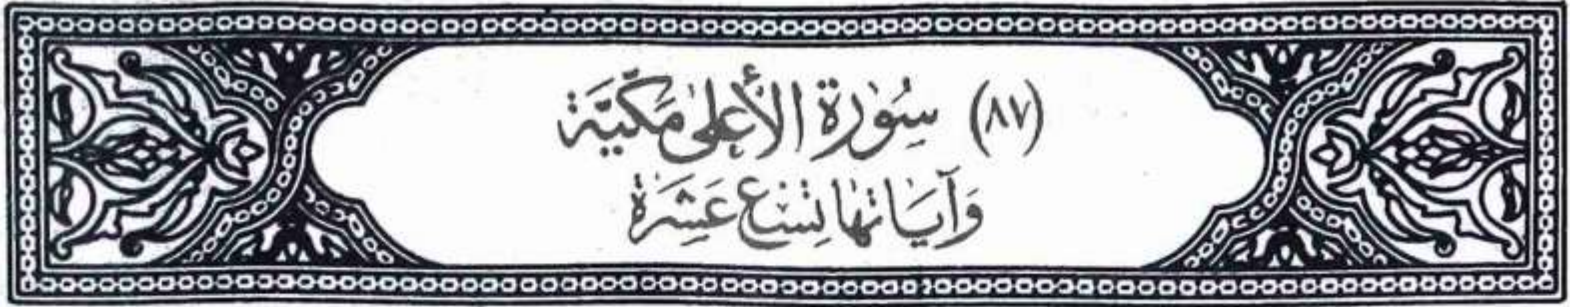 (٨٧) سُورَة الأَعْلىٰ مَكِّيَّة
وَآيَاتهَا تِسْع عَشَرَة